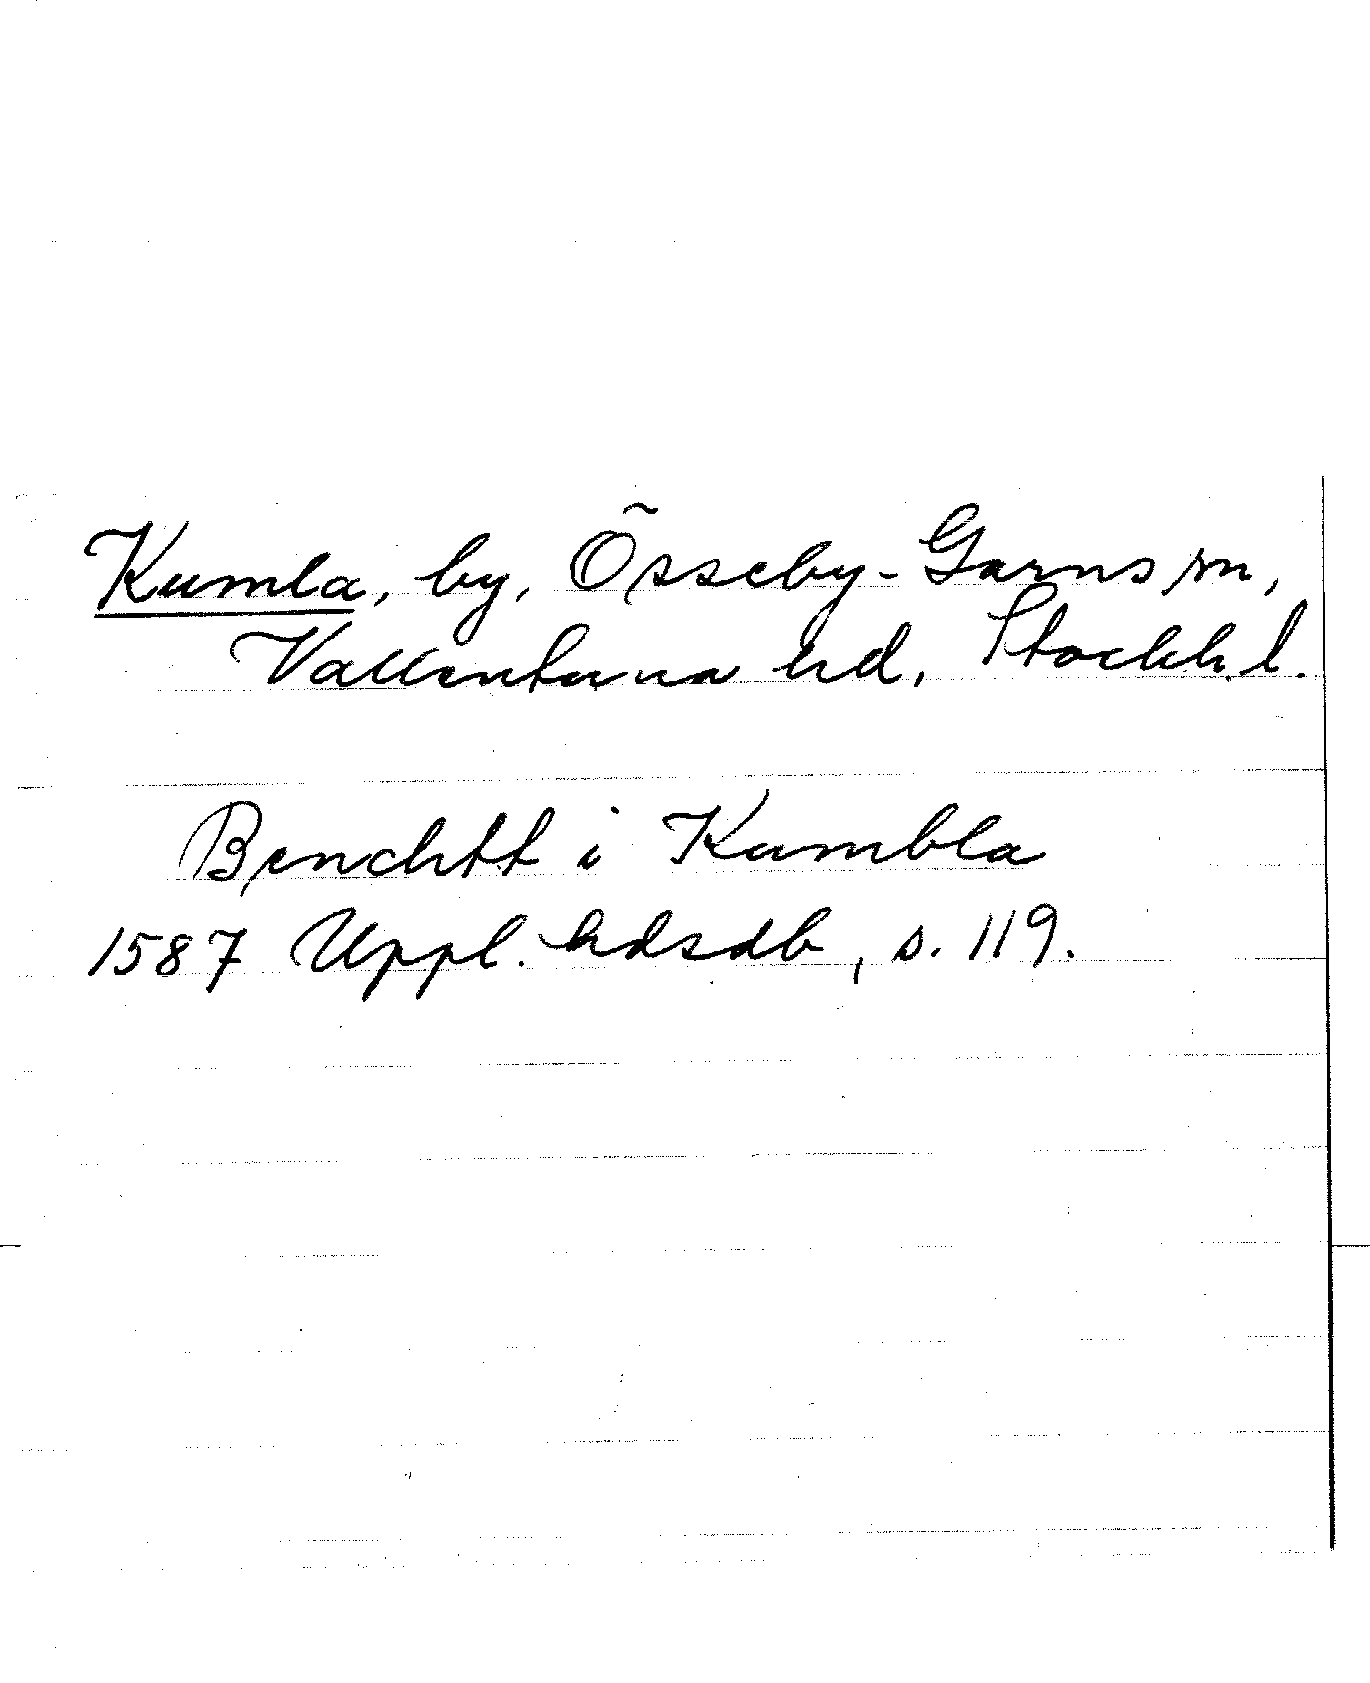 Kumla, by, Össeby-Garns sn,
Vallentuna hd, Stockh. l.
Benchtt i Kumbla
1587 Uppl. hdsdb, s. 119.